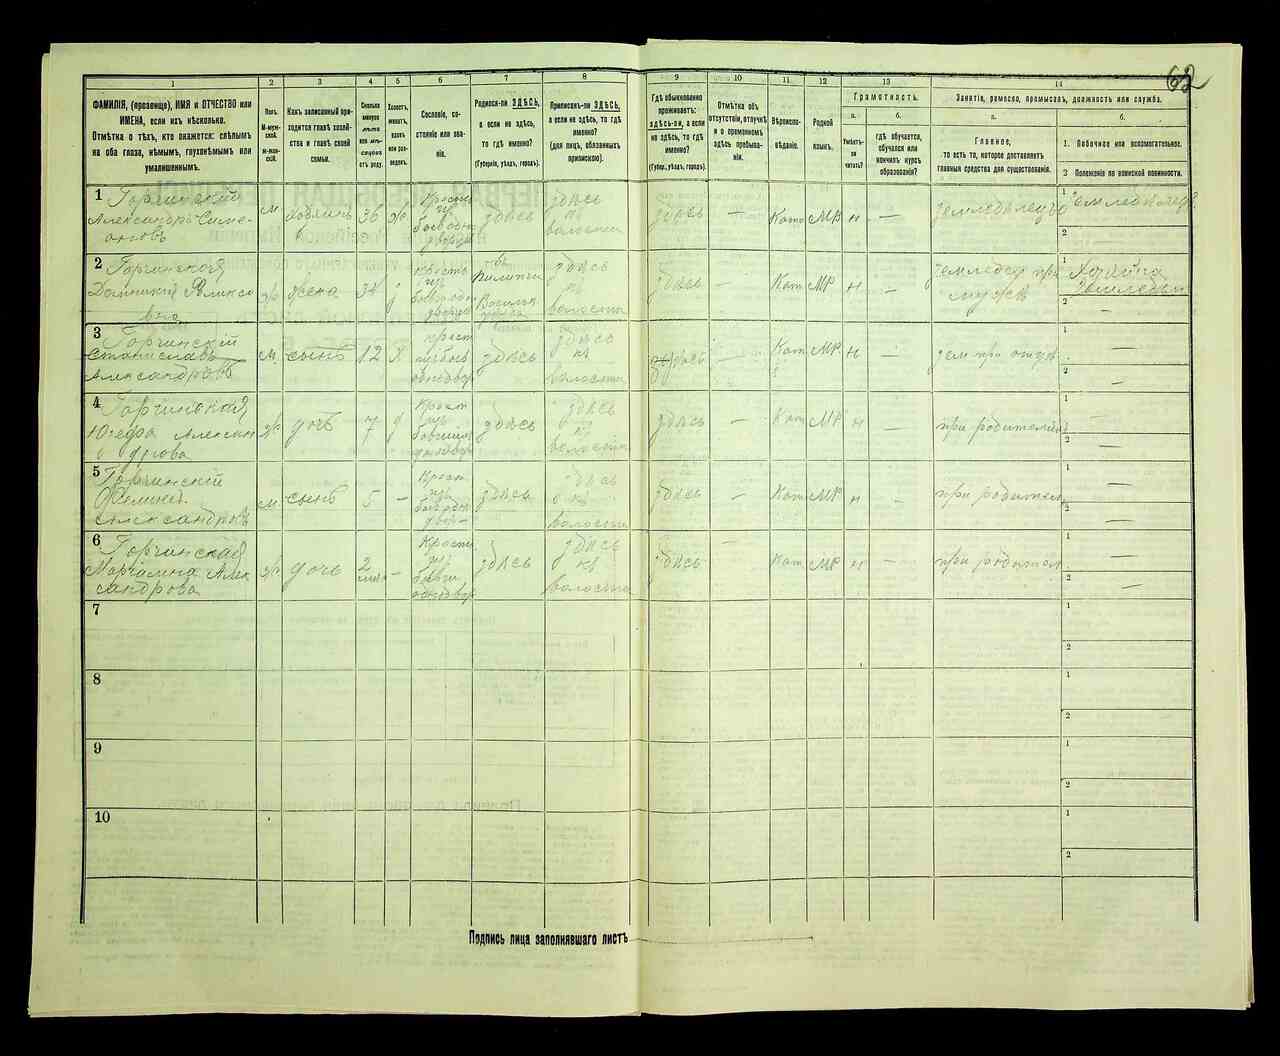 62
1
2
3
4
5
6
7
8
9
10
11
12
13
14
ФАМИЛІЯ, (прозвище), ИМЯ и ОТЧЕСТВО или
ИМЕНА, если ихъ нѣсколько.
Отмѣтка о тѣхъ, кто окажется: слѣпымъ
на оба глаза, нѣмымъ, глухонѣмымъ или
умалишеннымъ.
Полъ.
М-муж-
ской.
ж-жен-
скій.
Какъ записанный при-
ходится главѣ хозяй-
ства и главѣ своей
семьи.
Сколько
минуло
лѣтъ
или мѣ-
сяцевъ
отъ роду.
Холостъ,
женатъ,
вдовъ
или раз-
веденъ.
Сословіе, со-
стояніе или зва-
ніе.
Родился-ли ЗДѢСЬ,
а если не здѣсь,
то гдѣ именно?
(Губернія, уѣздъ, городъ).
Приписанъ-ли ЗДѢСЬ,
а если не здѣсь, то гдѣ
именно?
(для лицъ, обязанныхъ
припискою).
Гдѣ обыкновенно
проживаетъ:
здѣсь-ли, а если
не здѣсь, то гдѣ
именно?
(Губер., уѣздъ, городъ).
Отмѣтка объ
отсутствіи, отлучкѣ
и о временномъ
здѣсь пребыва-
ніи.
Вѣроиспо-
вѣданіе.
Родной
языкъ.
Грамотность.
а.
б.
Умѣетъ-
ли
читать?
гдѣ обучается,
обучался или
кончилъ курсъ
образованія?
Занятіе, ремесло, промыселъ, должность или служба.
а.
б.
Главное,
то есть то, которое доставляетъ
главныя средства для существованія.
1. Побочное или вспомогательное.
2 Положеніе по воинской повинности.
1
Горчинскій
Александръ Симо-
новъ
м
хозяинъ
36
ж
здѣсь
здѣсь
волости
здѣсь
—
Кат
МР
н
—
земледѣлецъ
1
2
2
Горчинская
жена
34
здѣсь
волости
здѣсь
—
Кат
МР
н
—
при
мужѣ
1
2
—
3
Горчинскій
Станиславъ
Александровъ
м
сынъ
12
Х
здѣсь
здѣсь
волости
—
Кат
МР
н
—
зем при отцѣ
1
—
2
—
4
Горчинская
Юзефа Алексан
дрова
дочь
7
здѣсь
здѣсь
волости
здѣсь
—
Кат
МР
н
—
при родителяхъ
1
2
—
5
Горчинскій
Александровъ
м
сынъ
5
—
здѣсь
здѣсь
волости
здѣсь
—
Кат
МР
н
—
при родител
1
—
2
—
6
Горчинская
Марьянна Алек
сандрова
дочь
2
—
здѣсь
здѣсь
волости
здѣсь
—
Кат
МР
н
—
при родител
1
2
—
7
1
2
8
1
2
9
1
2
10
1
2
Подпись лица заполнявшаго листъ